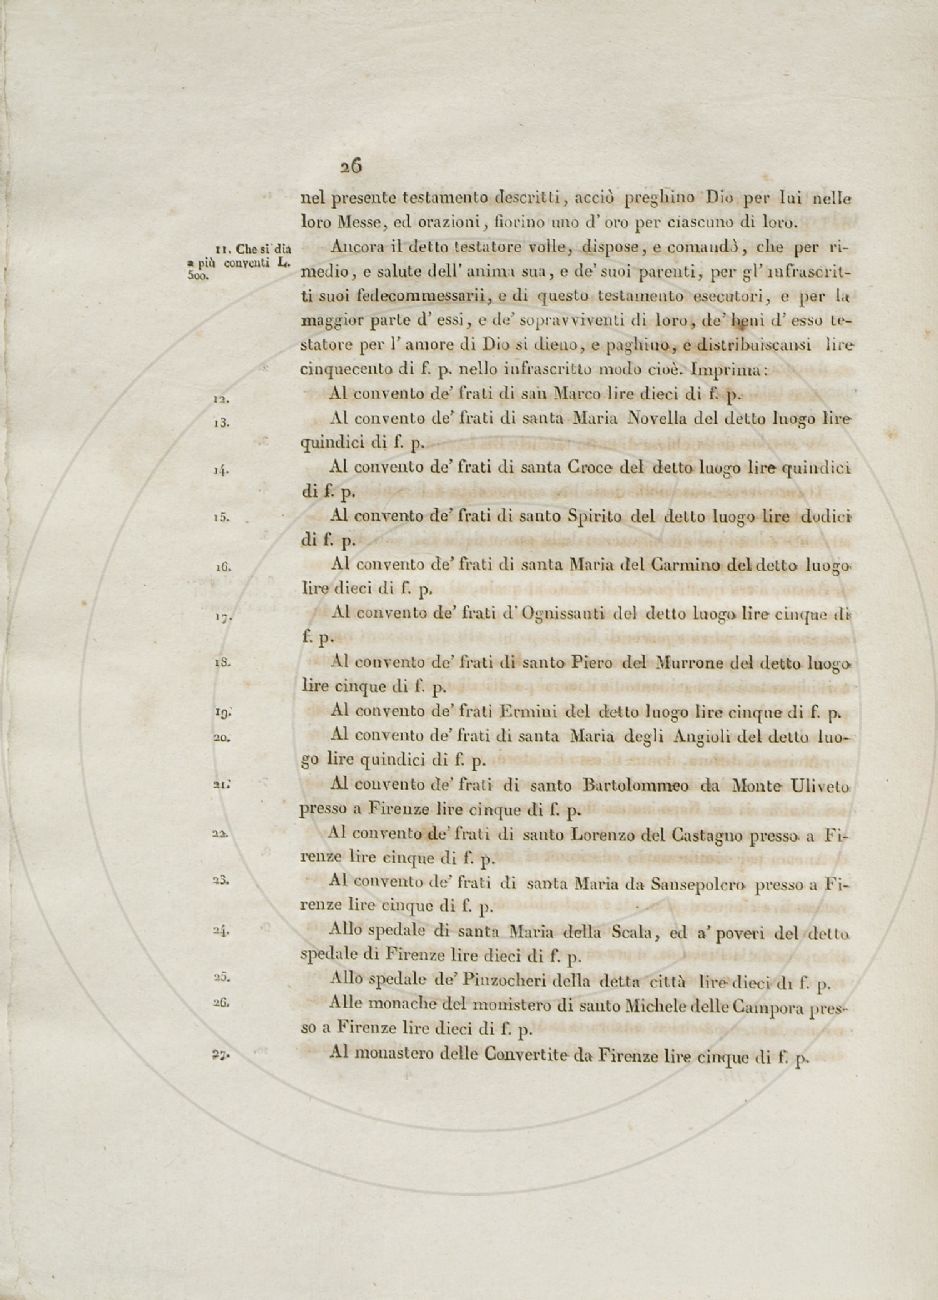 26
nel presente testamento descritti, acciò preghino Dio per lui nelle
loro Messe, ed orazioni, fiorino uno d' oro per ciascuno di loro.
11. Che si dia
a più conventi L.
500.
Ancora il detto testatore volle, dispose, e comandò, che per ri-
medio, e salute dell' anima sua, e de' suoi parenti, per gl' infrascrit-
ti suoi fedecommessarii, e di questo testamento esecutori, e per la
maggior parte d' essi, e de' sopravviventi di loro, de' beni d' esso te-
statore per l' amore di Dio si dieno, e paghino, e distribuiscansi lire
cinquecento di f. p. nello infrascritto modo cioè. Imprima:
12. Al convento de' frati di san Marco lire dieci di f. p.
13. Al convento de' frati di santa Maria Novella del detto luogo lire
quindici di f. p.
14. Al convento de' frati di santa Croce del detto luogo lire quindici
di f. p.
15. Al convento de' frati di santo Spirito del detto luogo lire dodici
di f. p.
16. Al convento de' frati di santa Maria del Carmino del detto luogo
lire dieci di f. p.
17. Al convento de' frati d' Ognissanti del detto luogo lire cinque di
f. p.
18. Al convento de' frati di santo Piero del Murrone del detto luogo
lire cinque di f. p.
19. Al convento de' frati Ermini del detto luogo lire cinque di f. p.
20. Al convento de' frati di santa Maria degli Angioli del detto luo-
go lire quindici di f. p.
21. Al convento de' frati di santo Bartolommeo da Monte Uliveto
presso a Firenze lire cinque di f. p.
22. Al convento de' frati di santo Lorenzo del Castagno presso a Fi-
renze lire cinque di f. p.
23. Al convento de' frati di santa Maria da Sansepolcro presso a Fi-
renze lire cinque di f. p.
24. Allo spedale di santa Maria della Scala, ed a' poveri del detto
spedale di Firenze lire dieci di f. p.
25. Allo spedale de' Pinzocheri della detta città lire dieci di f. p.
26. Alle monache del monistero di santo Michele delle Campora pres-
so a Firenze lire dieci di f. p.
27. Al monastero delle Convertite da Firenze lire cinque di f. p.